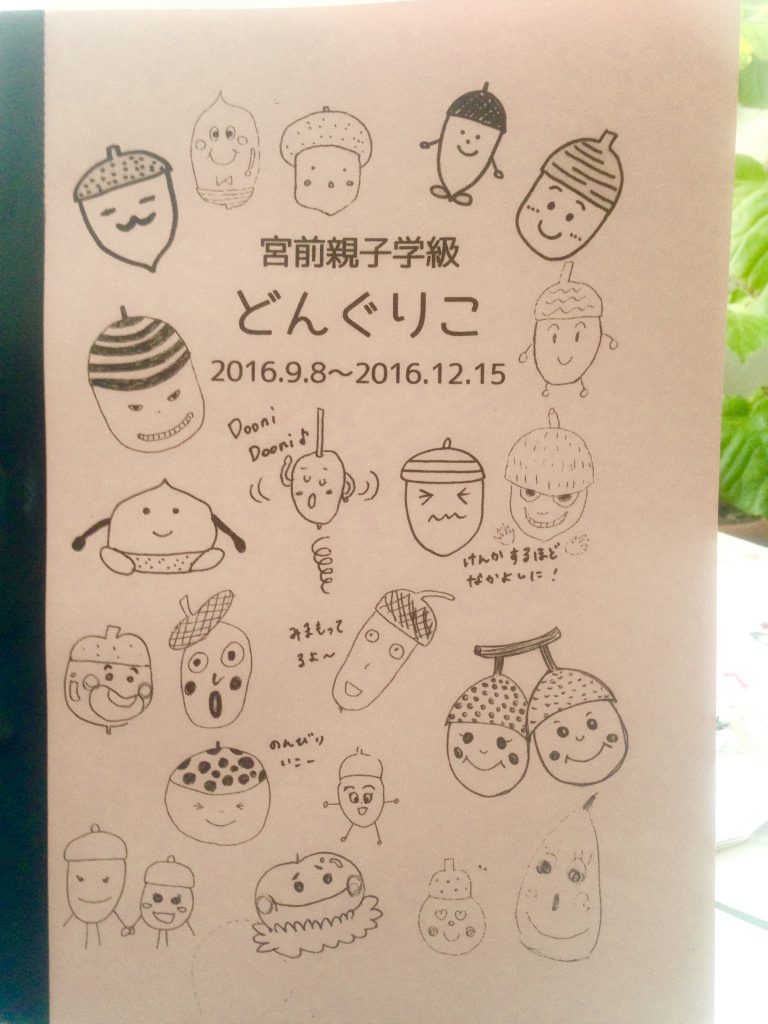 宮前親子学級
どんぐりこ
2016.9.8～2016.12.15
Dooni
Dooni♪
けんかするほど
なかよしに！
みまもって
るよ～
のんびり
いこー